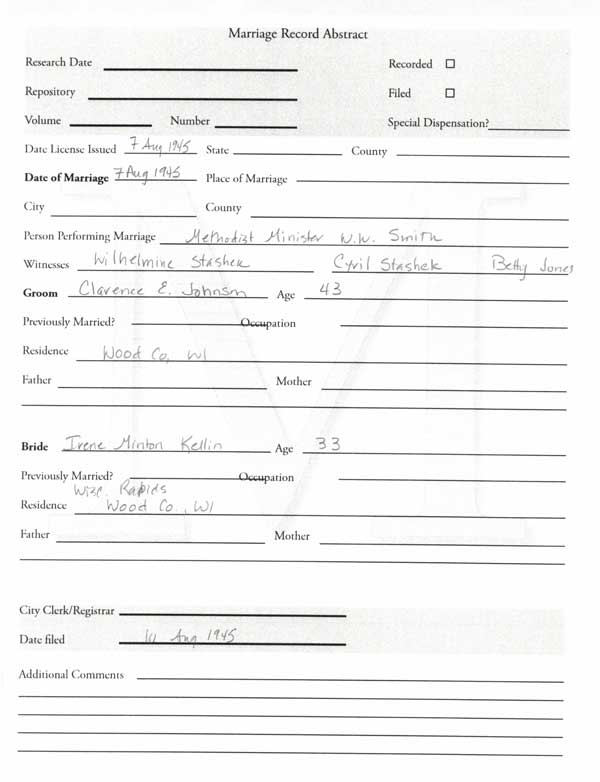 Marriage Record Abstract
Research Date Recorded
Repository Filed
Volume Number Special Dispensation?
Date License Issued 7 Aug 1945 State County
Date of Marriage 7 Aug 1945 Place of Marriage
City County
Person Performing Marriage Methodist Minister W.W. Smith
Witnesses Wilhelmine Stashek Cyril Stashek Betty Jones
Groom Clarence E. Johnson Age 43
Previously Married? Occupation
Residence Wood Co, WI
Father Mother
Bride Irene Minton Kellin Age 33
Previously Married? Occupation
Wisc. Rapids
Residence Wood Co., WI
Father Mother
City Clerk/Registrar
Date filed Aug 1945
Additional Comments